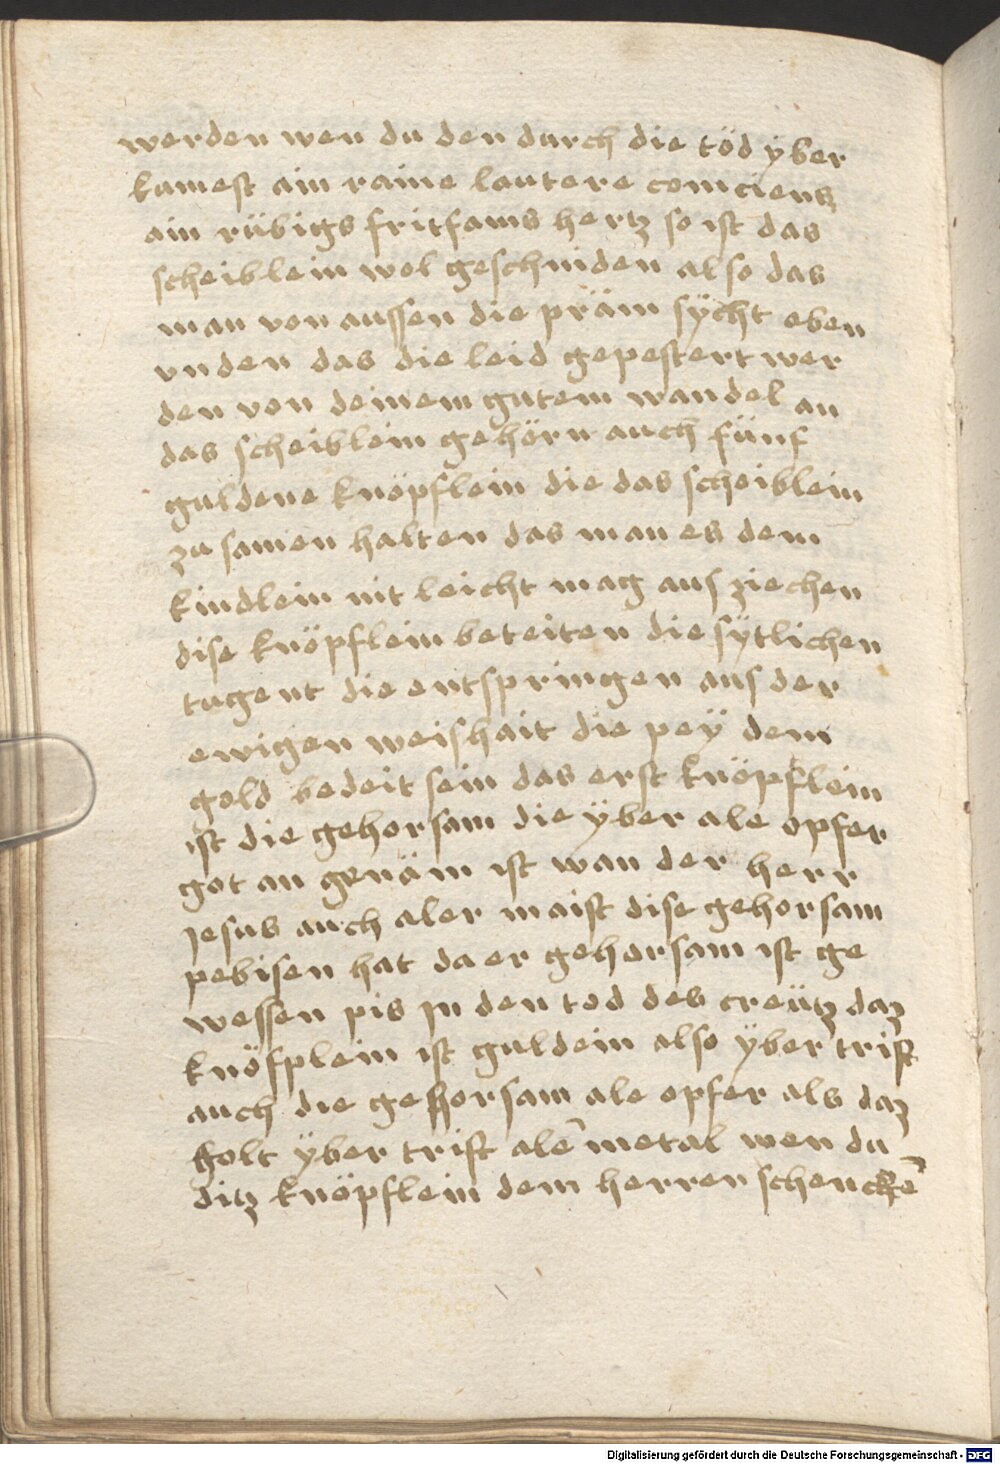 werden wen du den durch die töd ÿber
kumest ain raine lautere conciens
ain rübigs fritsams hertz so ist das
scheiblein wol geschniden also das
man von aussen die präm sÿcht eben
vnden das die leid gepestert wer
den von deinem gutem wandel an
das scheiblein gehörn auch fünf
guldene knöpflein die das scheiblein
zu samen halten das man es dem
kindlein nit leicht mag aus ziechen
dise knöpflein beteiten die sÿtlichen
tugent die entspringen aus der
ewigen weishait die peÿ dem
gold bedeit sein das erst knöpflein
ist die gehorsam die ÿber ale opfer
got an genäm ist wan der herr
jesus auch aler maist dise gehorsam
pebisen hat da er gehorsam ist ge
wessen pis jn den tod des creütz daz
knöfplein ist guldein also ÿber trift
auch die gehorsam ale opfer als daz
golt ÿber trift ale metal wen du
ditz knöpflein dem herren schencke̅
Digitalisierung gefördert durch die Deutsche Forschungsgemeinschaft - DFG